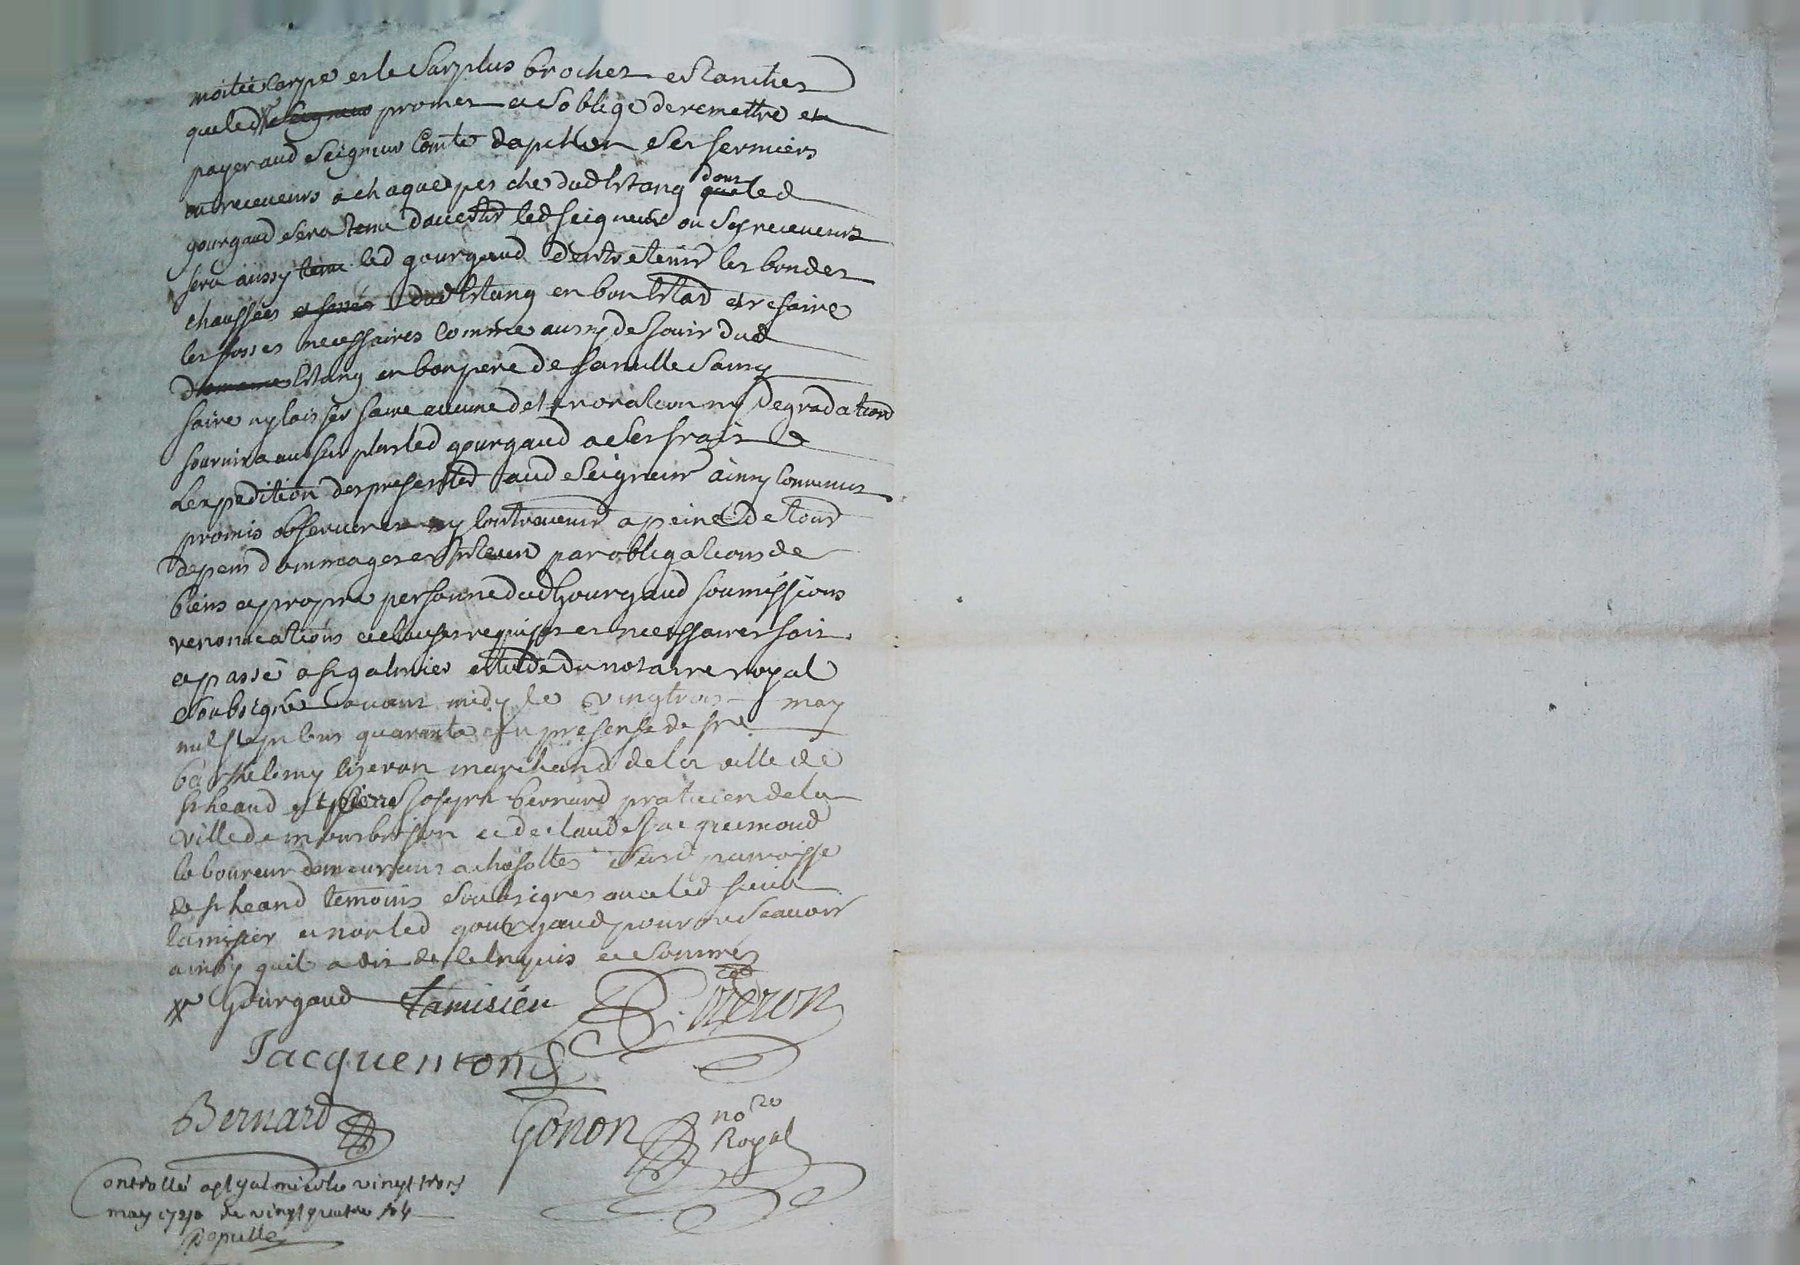 moitié carpe et le surplus brochet et tanches
que led promet et soblige de remettre et
payer aud seigneur Comte dapchon ses fermiers
ou receveurs a chaque pesche dud Estang dont led
gourgaud sera tenu davertir led seigneur ou ses receveurs
sera aussy led gourgaud dentretenir les bondes
chaussées et fossés dud Estang en bon Estat et refaire
les fosses necessaires comme aussy de jouir dud
Estang en bon pere de famille sans y
faire ny laisser faire aucune deterioration ny degradation
fournira au surplus led gourgaud a ses frais
Lexpedition des presentes aud seigneur ainsy convenus
promis observer et ny contrevenir a peine de tous
depens dommages et par obligations de
biens et propre personne dud gourgaud soumissions
renonciations et clauses requises et necessaires fait
et passé a st galmier etude du notaire royal
soubsigné avant midy le vingtrois may
mil sept cens quarante en presense de sre
barthelemy marchand de la ville de
st heand et pierre joseph bernard praticien de la
ville de montbrison et de claude jacquemond
laboureur demeurant a paroisse
de st heand temoins soubsignes avec led sieur
tamisier et non led gourgaud pour ne scavoir
ainsy quil a dit de ce enquis et sommé
gourgaud tamisier
Jacquemond
Bernard Gonon no re
Royal
Controllé a st galmier le vingt trois
may 1740 Re vingt quatre sols